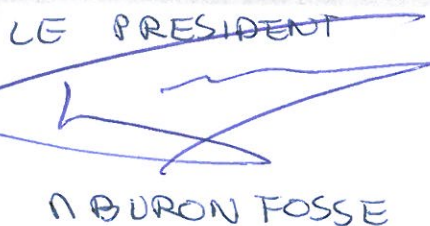 LE PRESIDENT
M BURON FOSSE